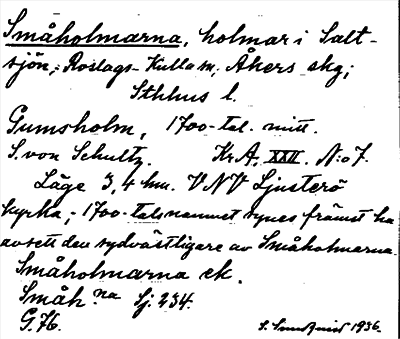 Småholmarna, holmar i Salt-
sjön; Roslags-Kulla sn, Åkers skg;
Sthlms l.
Gumsholm, 1700-tal. mitt.
S. von Schultz. KrA. XXII. N:o 7.
Läge 3,4 km. VNV Ljusterö
kyrka; 1700-talsnamnet synes främst ha
avsett den sydvästligare av Småholmarna.
Småholmarna ek.
Småh.na Sj. 234.
G.76. S. Sundquist 1936.